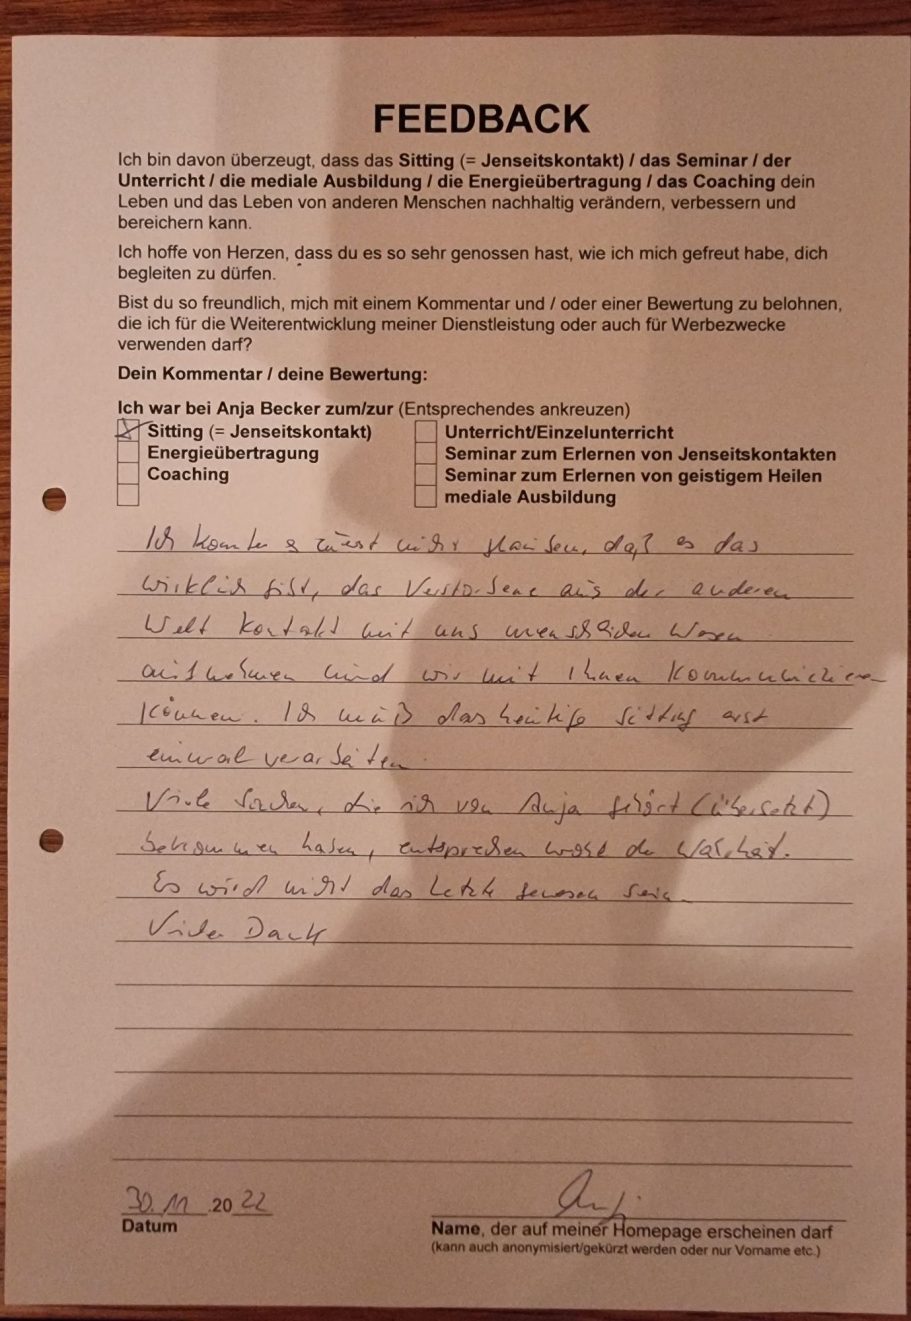 FEEDBACK
Ich bin davon überzeugt, dass das Sitting (= Jenseitskontakt) / das Seminar / der
Unterricht / die mediale Ausbildung / die Energieübertragung / das Coaching dein
Leben und das Leben von anderen Menschen nachhaltig verändern, verbessern und
bereichern kann.
Ich hoffe von Herzen, dass du es so sehr genossen hast, wie ich mich gefreut habe, dich
begleiten zu dürfen.
Bist du so freundlich, mich mit einem Kommentar und / oder einer Bewertung zu belohnen,
die ich für die Weiterentwicklung meiner Dienstleistung oder auch für Werbezwecke
verwenden darf?
Dein Kommentar / deine Bewertung:
Ich war bei Anja Becker zum/zur (Entsprechendes ankreuzen)
Sitting (= Jenseitskontakt) Unterricht/Einzelunterricht
Energieübertragung Seminar zum Erlernen von Jenseitskontakten
Coaching Seminar zum Erlernen von geistigem Heilen
mediale Ausbildung
Ich konnte zuerst nicht glauben, daß es das
wirklich gibt, das Verstorbene aus der anderen
Welt Kontakt mit uns menschlichen Wesen
aufnehmen und wir mit Ihnen Kommunizieren
können. Ich muß das heutige Sitting erst
einmal verarbeiten.
Viele Sachen, die ich von Anja gehört (übersetzt)
bekommen haben, entsprechen wohl der Wahrheit.
Es wird nicht das Letzte gewesen sein.
Vielen Dank
30.11.2022
Datum Name, der auf meiner Homepage erscheinen darf
(kann auch anonymisiert/gekürzt werden oder nur Vorname etc.)